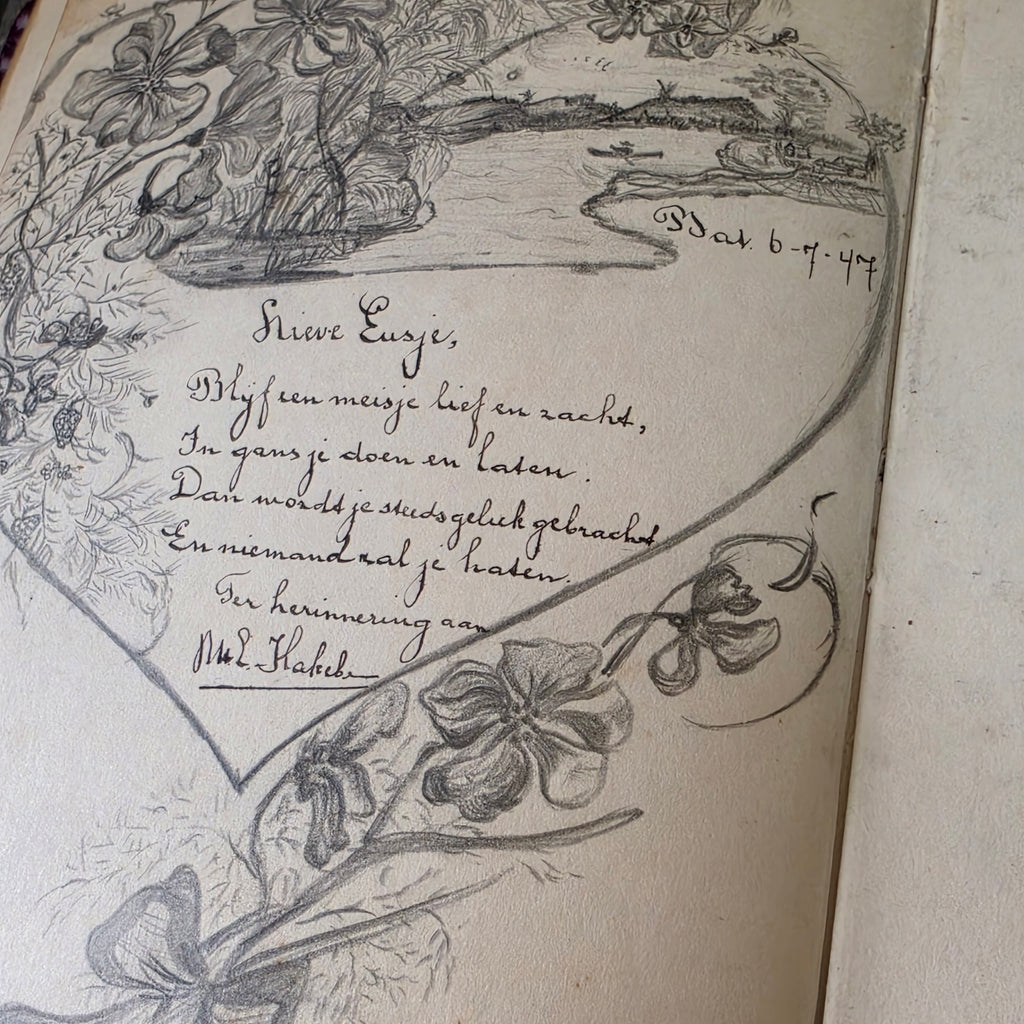 Bat. 6-7-47
Lieve Eusje,
Blijf een meisje lief en zacht,
In gans je doen en laten.
Dan wordt je steeds geluk gebracht
En niemand zal je haten.
Ter herinnering aan